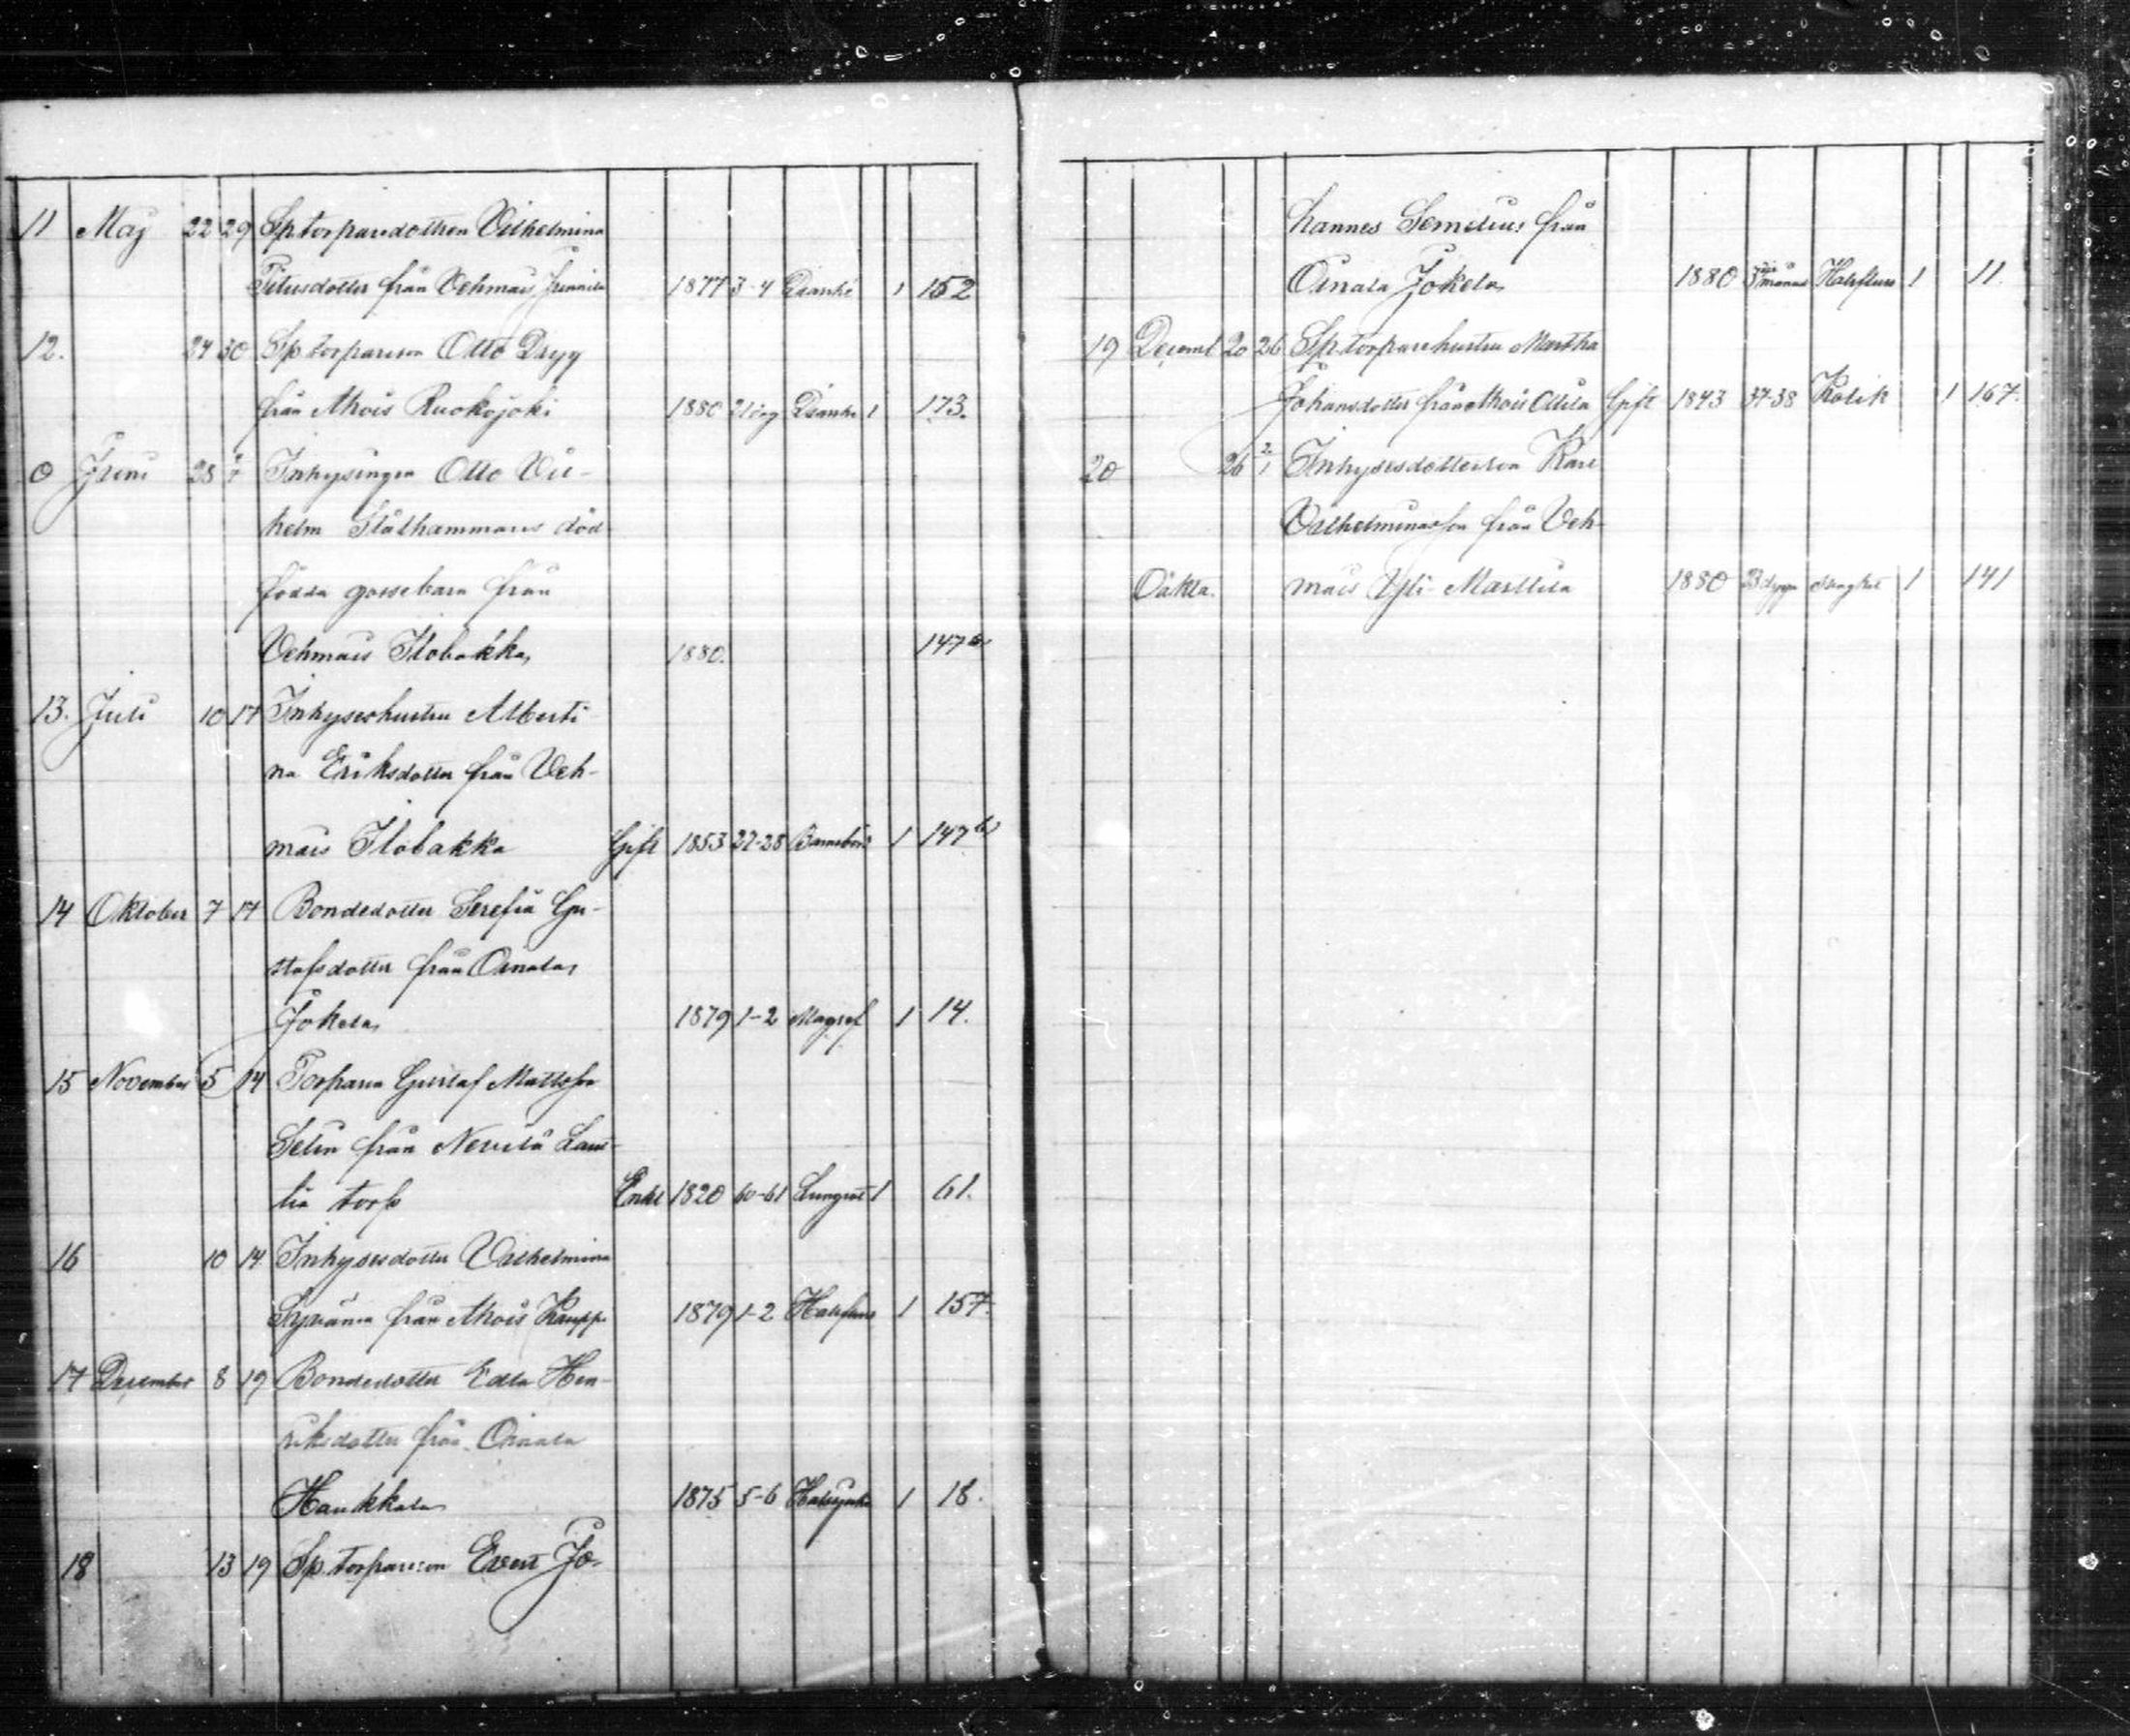 11 Maj 22 29 Sp. torparedottren Vilhelmina
Titusdotter från Vehmais 1877 3-4 1 152
12. 24 30 Sp. torpareson Otto Dryg
från Ahois Ruokojoki 1880 1 173.
0 Juni 28 Inhysingen Otto Vil-
helm Stålhammars död
födda gossebarn från
Vehmais Ilobakka 1880. 147
13. Juli 10 17 Inhyseshustru Alberti
na Eriksdotter från Veh-
mais Ilobakka Gift 1853 27-28 Barnsbörd 1 147
14 Oktober 7 17 Bondedotter Serefia Gu-
stafsdotter från Oinala
Jokela 1879 1-2 Magref 1 14.
15 November 5 14 Torparen Gustaf Mattsson
Selin från
torp Enkl 1820 60-61 Lungsot 1 61.
16 10 14 Inhysesdotter Vilhelmina
från Ahois Kauppi 1879 1-2 Halsfluss 1 157.
17 December 8 19 Bondedotter Edla Hen-
riksdotter från Oinala
Haukkala 1875 5-6 1 18.
18 13 19 Sp. torpareson Evert Jo-
hannes Semelius från
Oinala Jokela 1880 Halsfluss 1 11.
19 Decemb 20 26 Sp. torparehustru Martha
Johansdotter från Ahois Ollila Gift 1843 37-38 Kolik 1 167.
20 26 2/1 Inhysesdotterson Karl
Vilhelminasson från Veh-
mais Yli-Marttila 1880 1 141